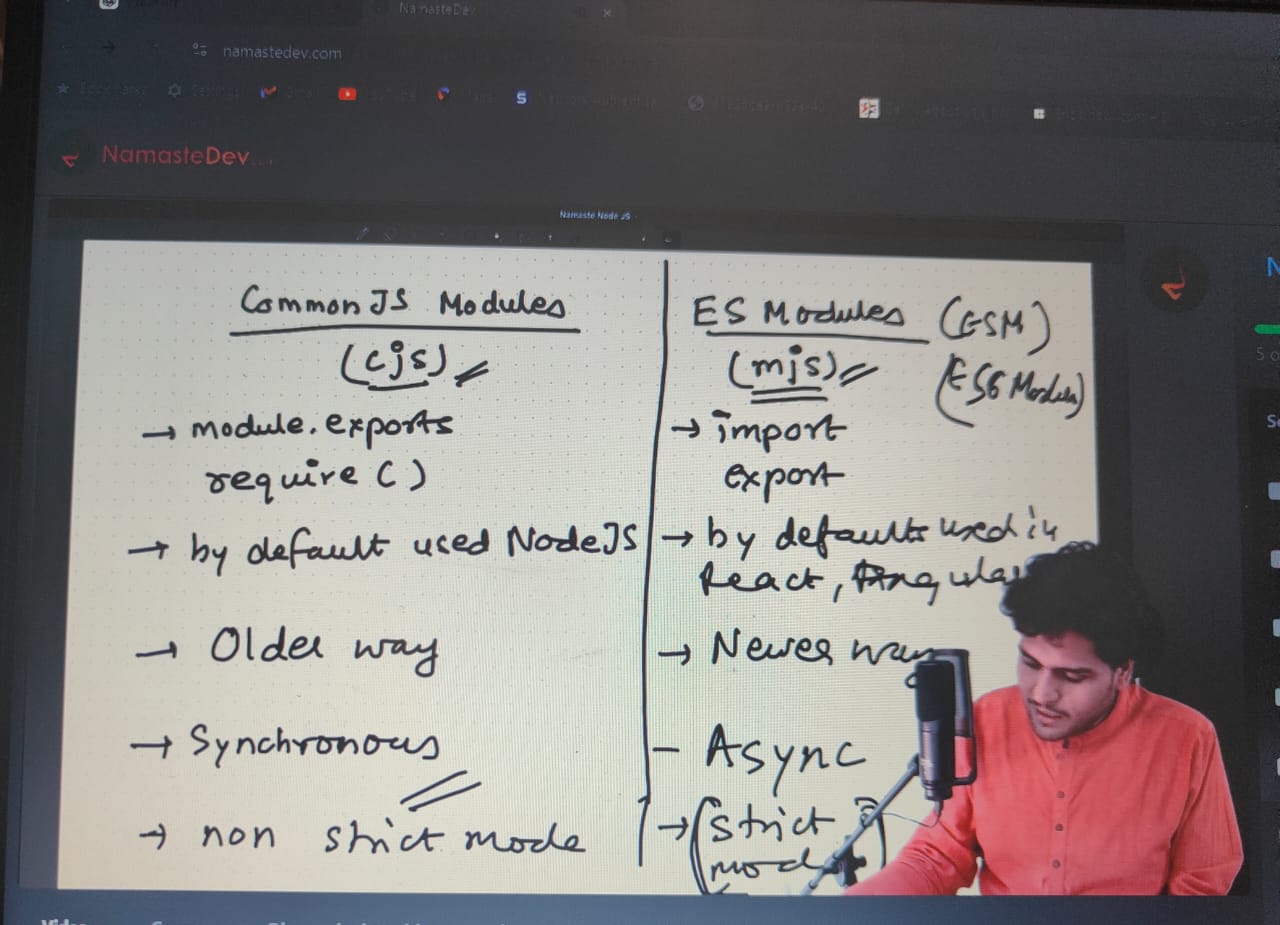 NamasteDev
namastedev.com
NamasteDev
Namaste Node JS
CommonJS Modules
(cjs)
→ module.exports
require ()
→ by default used NodeJS
→ Older way
→ Synchronous
→ non strict mode
ES Modules (ESM)
(mjs) (ES6 Modules)
→ import
export
→ by default used in
React, Angular
→ Newer way
- Async
→ (strict
mode)